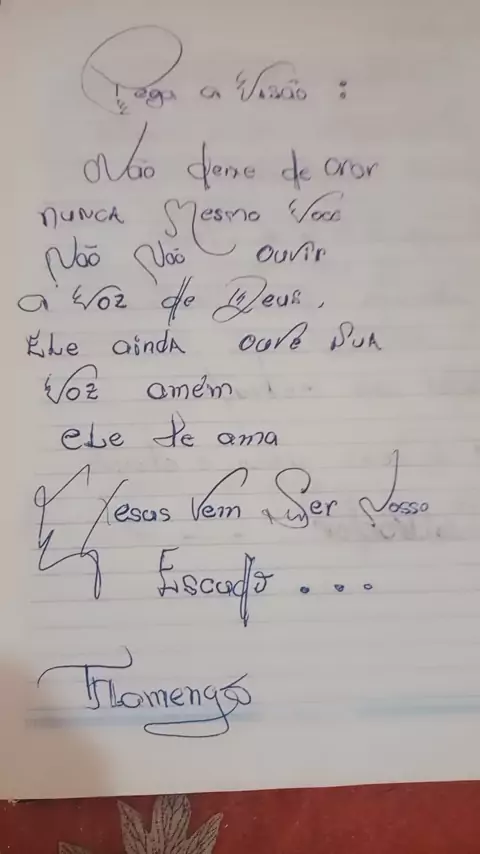 Pega a Visão :
Não deixe de orar
NUNCA Mesmo Você
Não Não ouvir
a Voz de Deus,
ELe ainda ouve SUA
Voz amém
eLe te ama
Jesus Vem Ser Nosso
Escudo ...
FLamengo